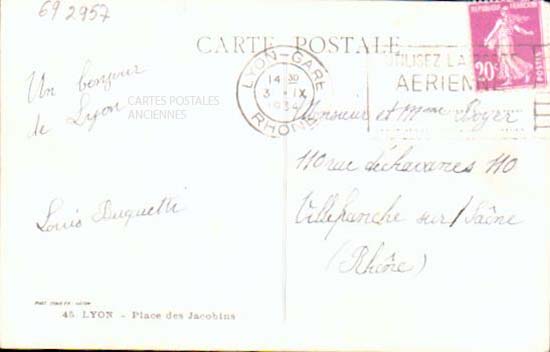 69 2957
CARTE POSTALE
LYON-GARE
14 30
3 - IX
1934
RHÔNE
UTILISEZ LA
AERIENNE
REPUBLIQUE FRANÇAISE
20c
POSTES
Un bonjour
de Lyon
CARTES POSTALES
ANCIENNES
Monsieur et Mme Boyer
110 rue déchavanes 110
Villefranche sur/Saône
(Rhône)
Louis Duquetti
45 LYON - Place des Jacobins